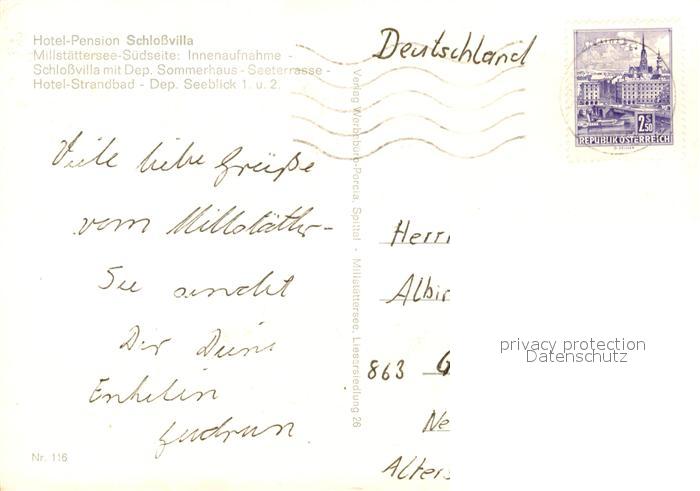 Hotel-Pension Schloßvilla
Millstättersee-Südseite: Innenaufnahme -
Schloßvilla mit Dep. Sommerhaus - Seeterrasse -
Hotel-Strandbad - Dep. Seeblick 1. u. 2.
Viele liebe Grüße
vom Millstätter-
See sendet
Dir Deine
Enkelin
Gudrun
Nr. 116
Verlag Werbebüro-Porcia, Spittal - Millstättersee, Liesersiedlung 26
Deutschland
2 S 50
REPUBLIK ÖSTERREICH
Herrn
Albin
863 G
Ne
Alters
privacy protection
Datenschutz